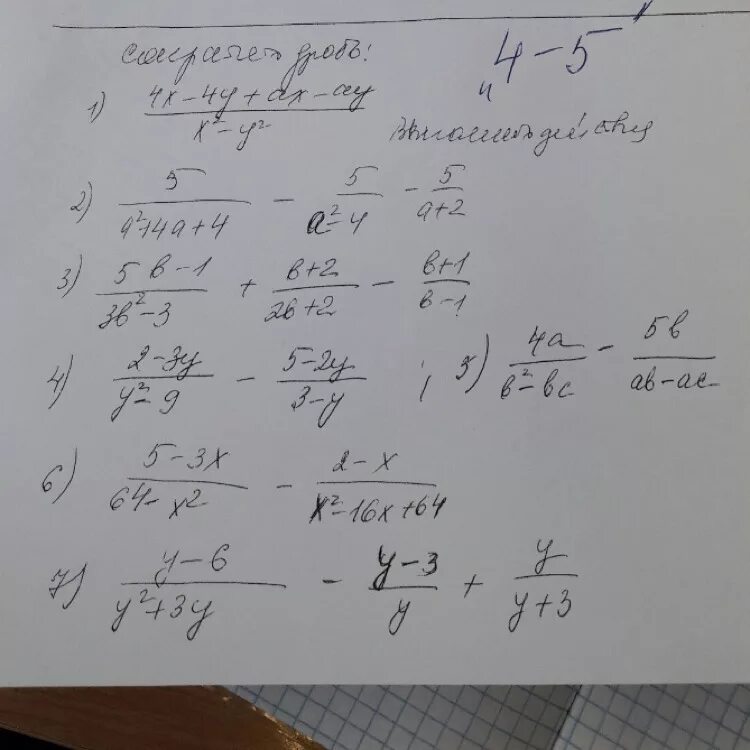 сократить дробь:
"4-5"
1) (4x-4y+ax-ay)/(x²-y²)
Выполнить действия
2) 5/(a²+4a+4) - 5/(a²-4) - 5/(a+2)
3) (5в-1)/(3в²-3) + (в+2)/(2в+2) - (в+1)/(в-1)
4) (2-3y)/(y²-9) - (5-2y)/(3-y) ;
5) 4a/(в²-вс) - 5в/(ав-ас)
6) (5-3x)/(64-x²) - (2-x)/(x²-16x+64)
7) (y-6)/(y²+3y) - (y-3)/y + y/(y+3)